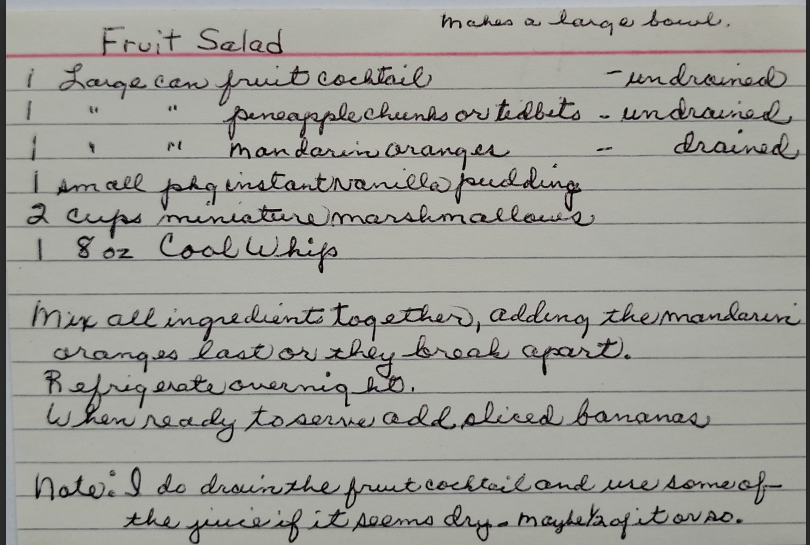 Makes a large bowl.
Fruit Salad
1 Large can fruit cocktail - undrained
1 " " pineapple chunks or tidbits - undrained
1 " " mandarin oranges - drained
1 small pkg instant vanilla pudding
2 cups miniature marshmallows
1 8 oz Cool Whip
Mix all ingredients together, adding the mandarin
oranges last or they break apart.
Refrigerate overnight.
When ready to serve add sliced bananas
Note: I do drain the fruit cocktail and use some of
the juice if it seems dry - maybe 1/2 of it or so.